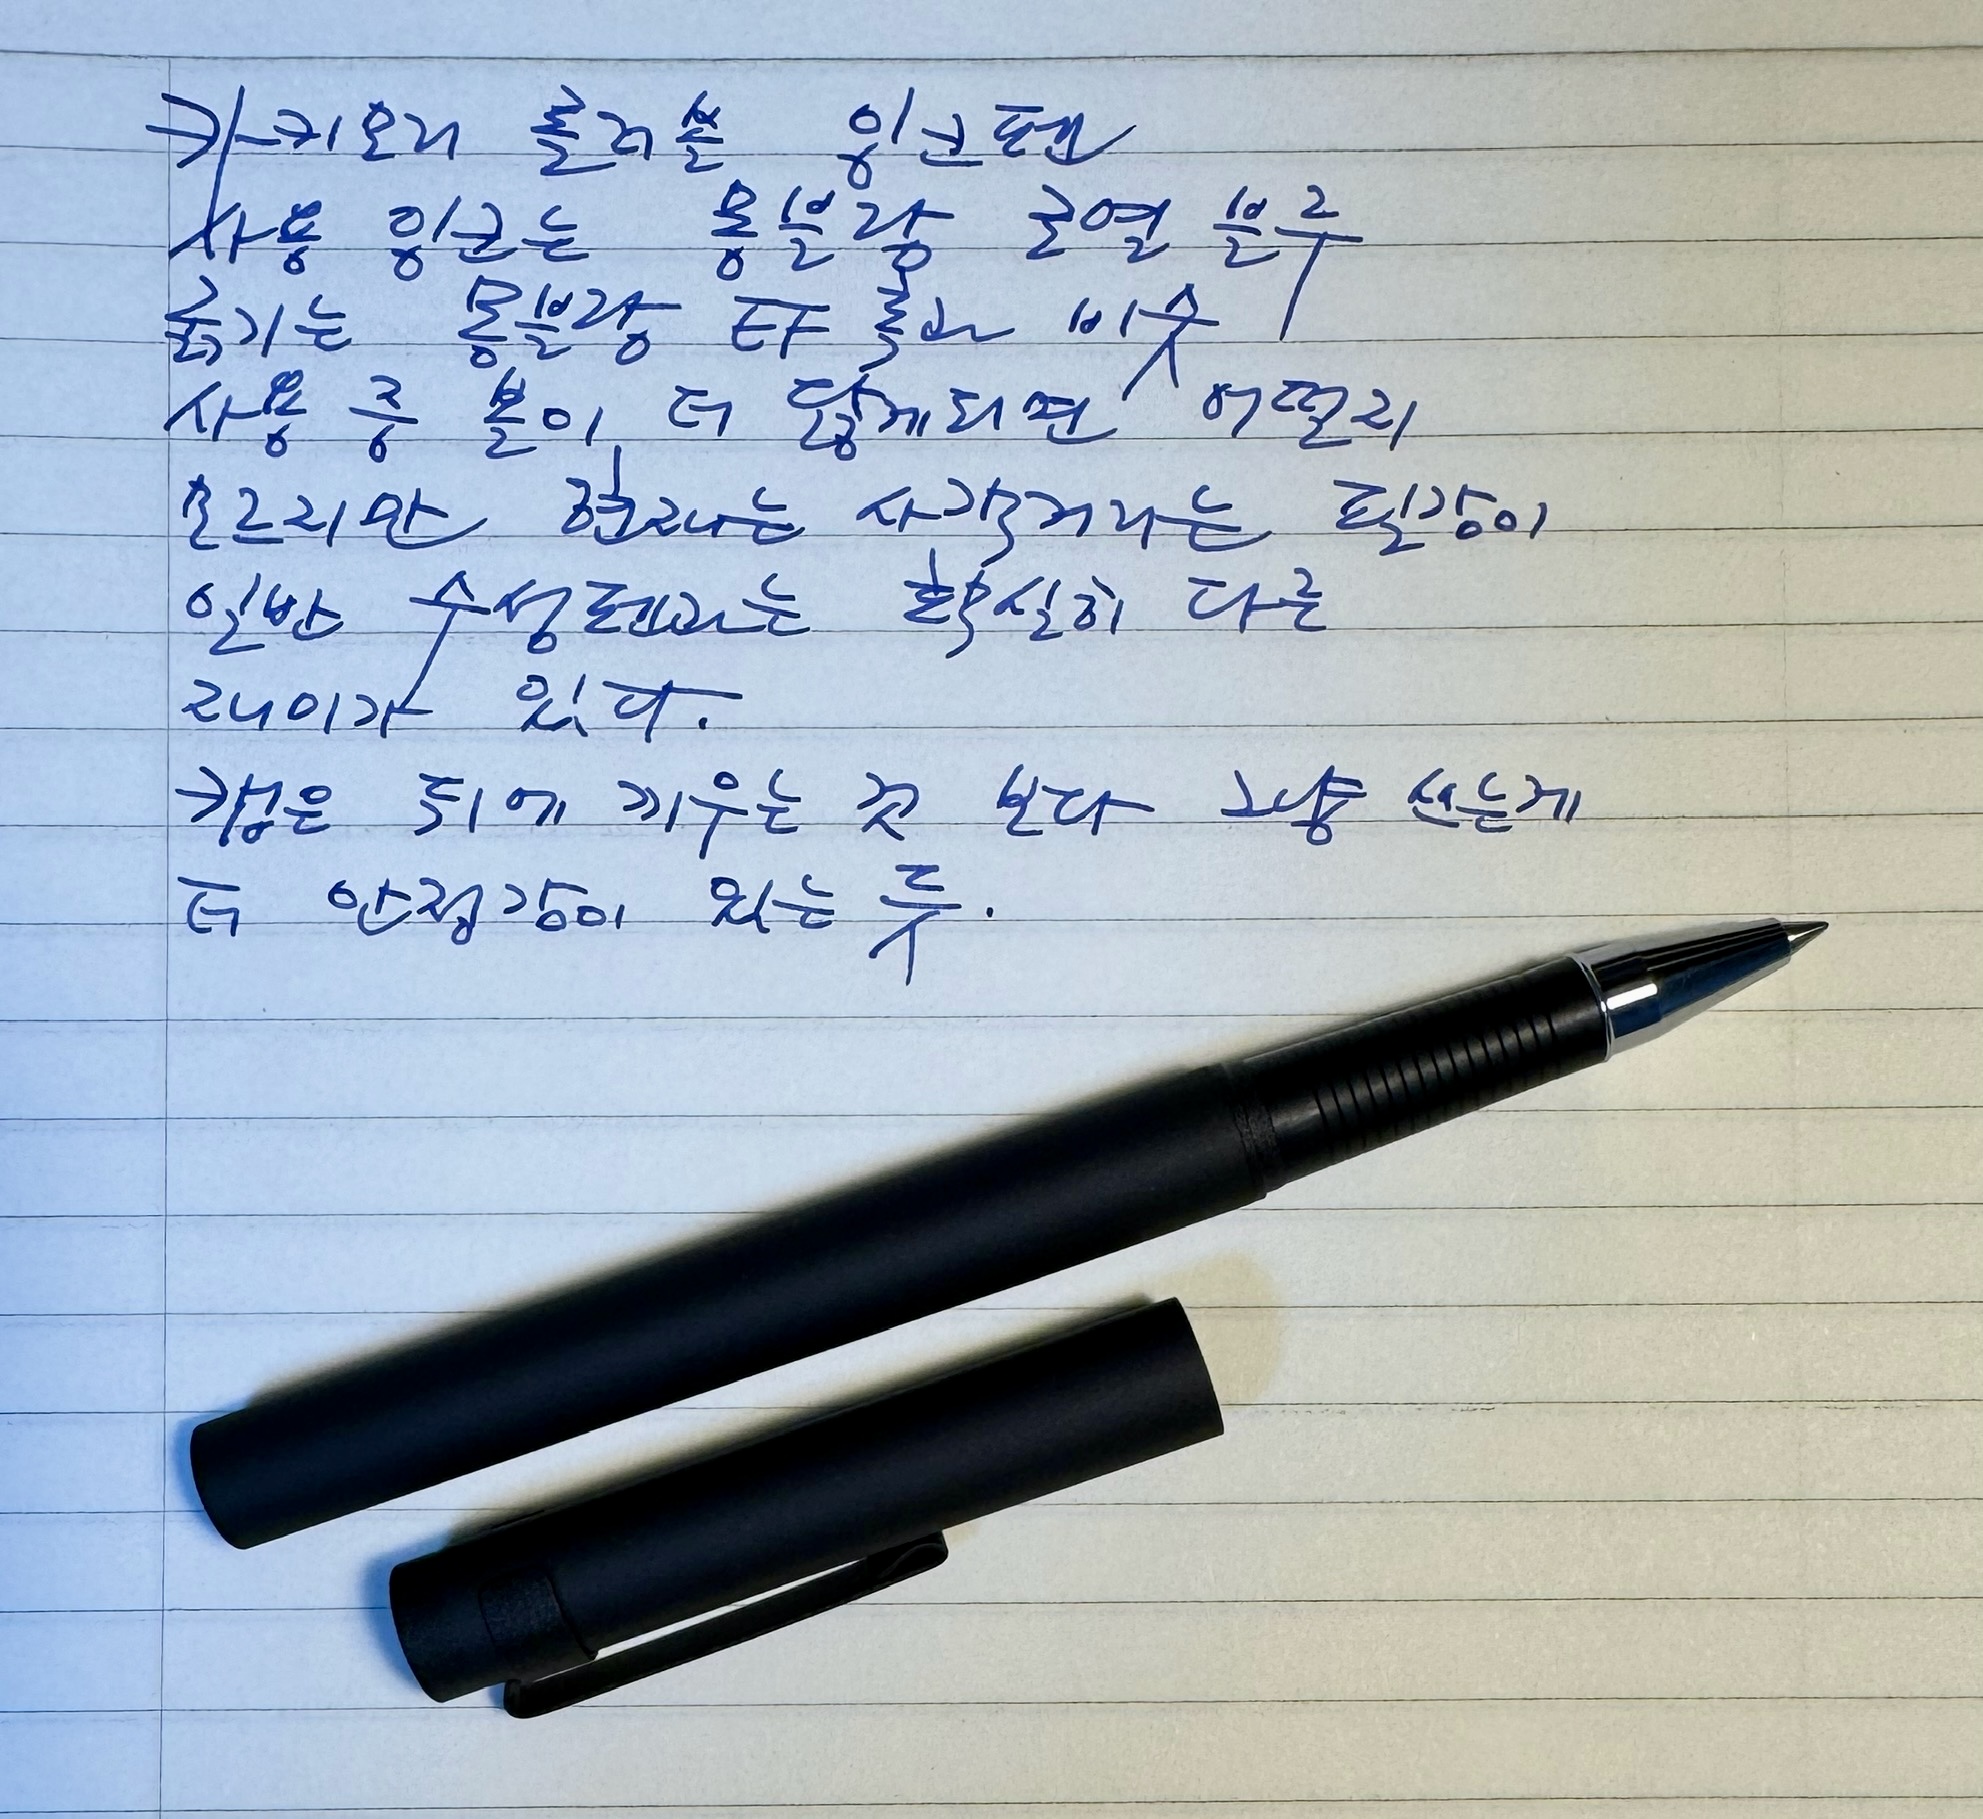 카키모리 롤러볼 잉크펜
사용 잉크는 몽블랑 로열 블루
굵기는 몽블랑 EF 촉과 비슷
사용 중 볼이 더 닳게되면 어떨지
모르지만 현재는 사각거리는 필감이
일반 수성펜과는 확실히 다른
재미가 있다.
캡은 뒤에 끼우는 것 보다 그냥 쓰는게
더 안정감이 있는 듯.